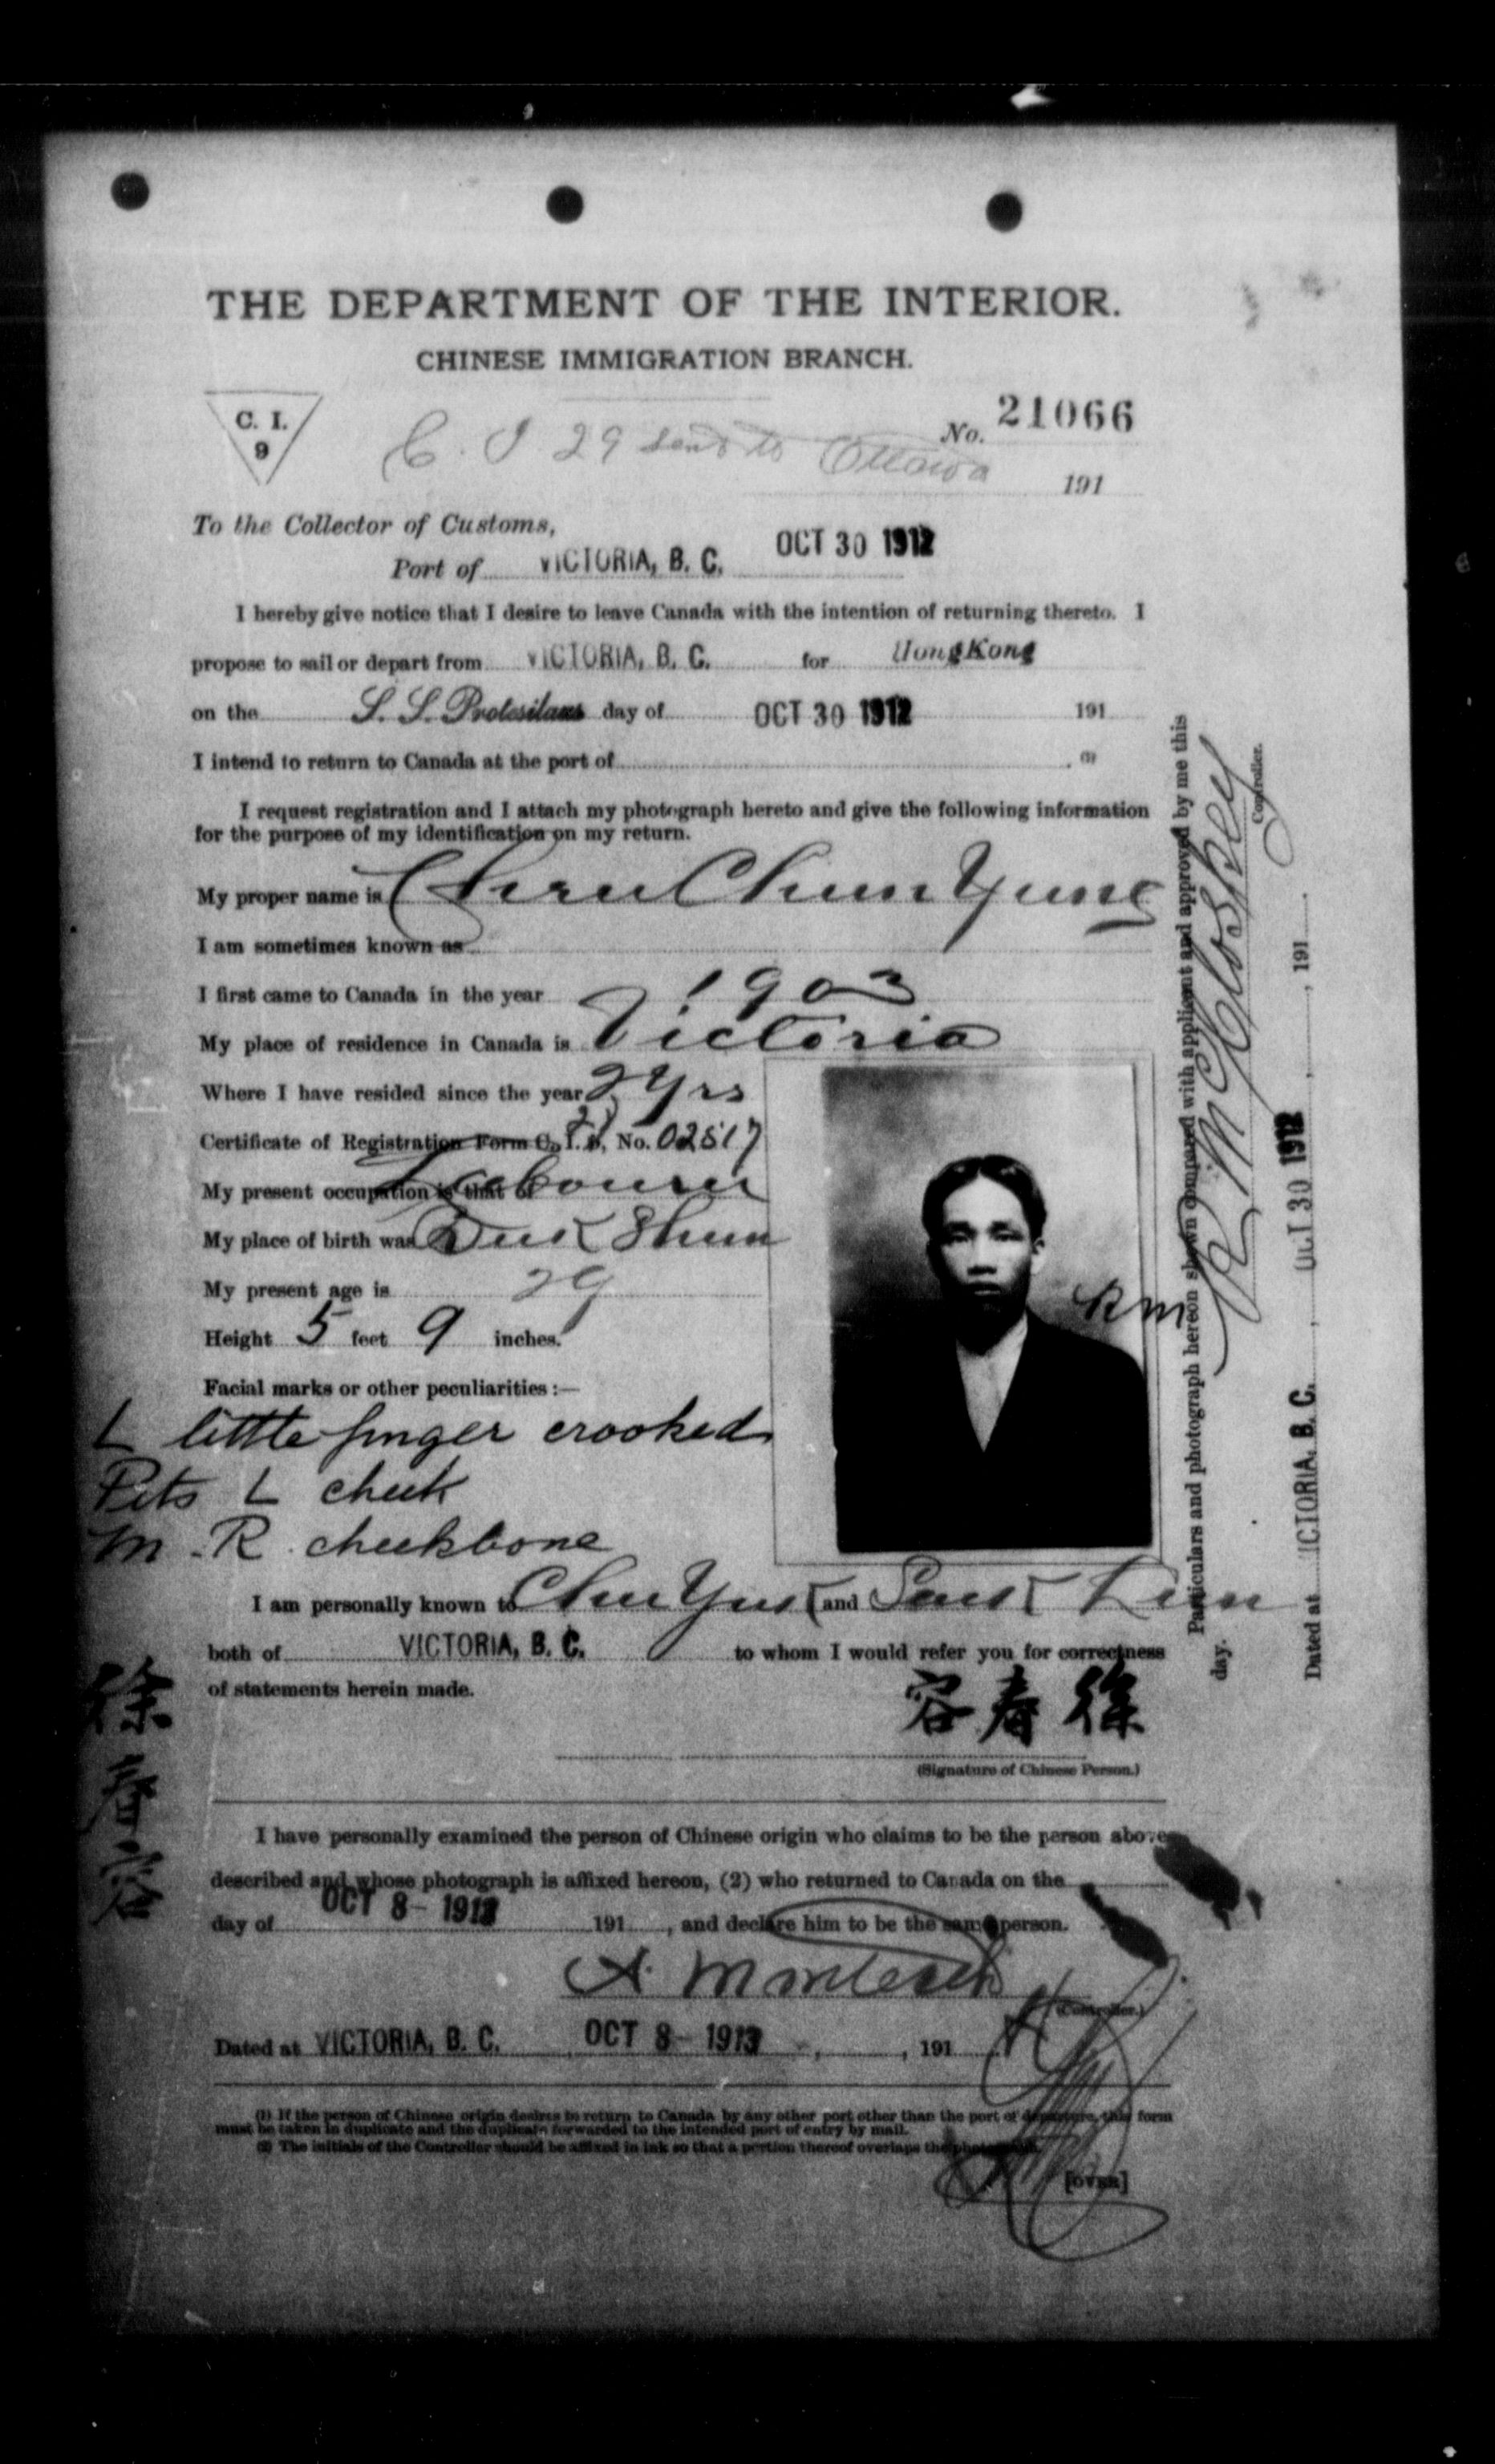 THE DEPARTMENT OF THE INTERIOR.
CHINESE IMMIGRATION BRANCH.
C. I.
9
No. 21066
C. I 29 sent to Ottawa
191
To the Collector of Customs,
Port of VICTORIA, B. C. OCT 30 1912
I hereby give notice that I desire to leave Canada with the intention of returning thereto. I
propose to sail or depart from VICTORIA, B. C. for HongKong
on the S. S. Protesilaus day of OCT 30 1912 191
I intend to return to Canada at the port of (1)
I request registration and I attach my photograph hereto and give the following information
for the purpose of my identification on my return.
My proper name is Chun Yung
I am sometimes known as
I first came to Canada in the year 1903
My place of residence in Canada is Victoria
Where I have resided since the year 2 yrs
Certificate of Registration Form C. I. No. 02517
My present occupation is that of Labourer
My place of birth was Shun
My present age is 29
Height 5 feet 9 inches.
Facial marks or other peculiarities :—
L little finger crooked
Pits L cheek
M. R. cheekbone
RM
I am personally known to and
both of VICTORIA, B. C. to whom I would refer you for correctness
of statements herein made.
容春徐
(Signature of Chinese Person.)
徐春容
I have personally examined the person of Chinese origin who claims to be the person above
described and whose photograph is affixed hereon, (2) who returned to Canada on the
day of OCT 8- 1913 191 , and declare him to be the same person.
(Controller.)
Dated at VICTORIA, B. C. OCT 8- 1913 , 191
(1) If the person of Chinese origin desires to return to Canada by any other port other than the port of departure, this form
must be taken in duplicate and the duplicate forwarded to the intended port of entry by mail.
(2) The initials of the Controller should be affixed in ink so that a portion thereof overlaps the photograph.
[OVER]
Particulars and photograph hereon shown compared with applicant and approved by me this
day.
Controller.
Dated at VICTORIA, B. C. , OCT 30 1912 , 191